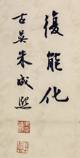 復能化
古吳朱成熙